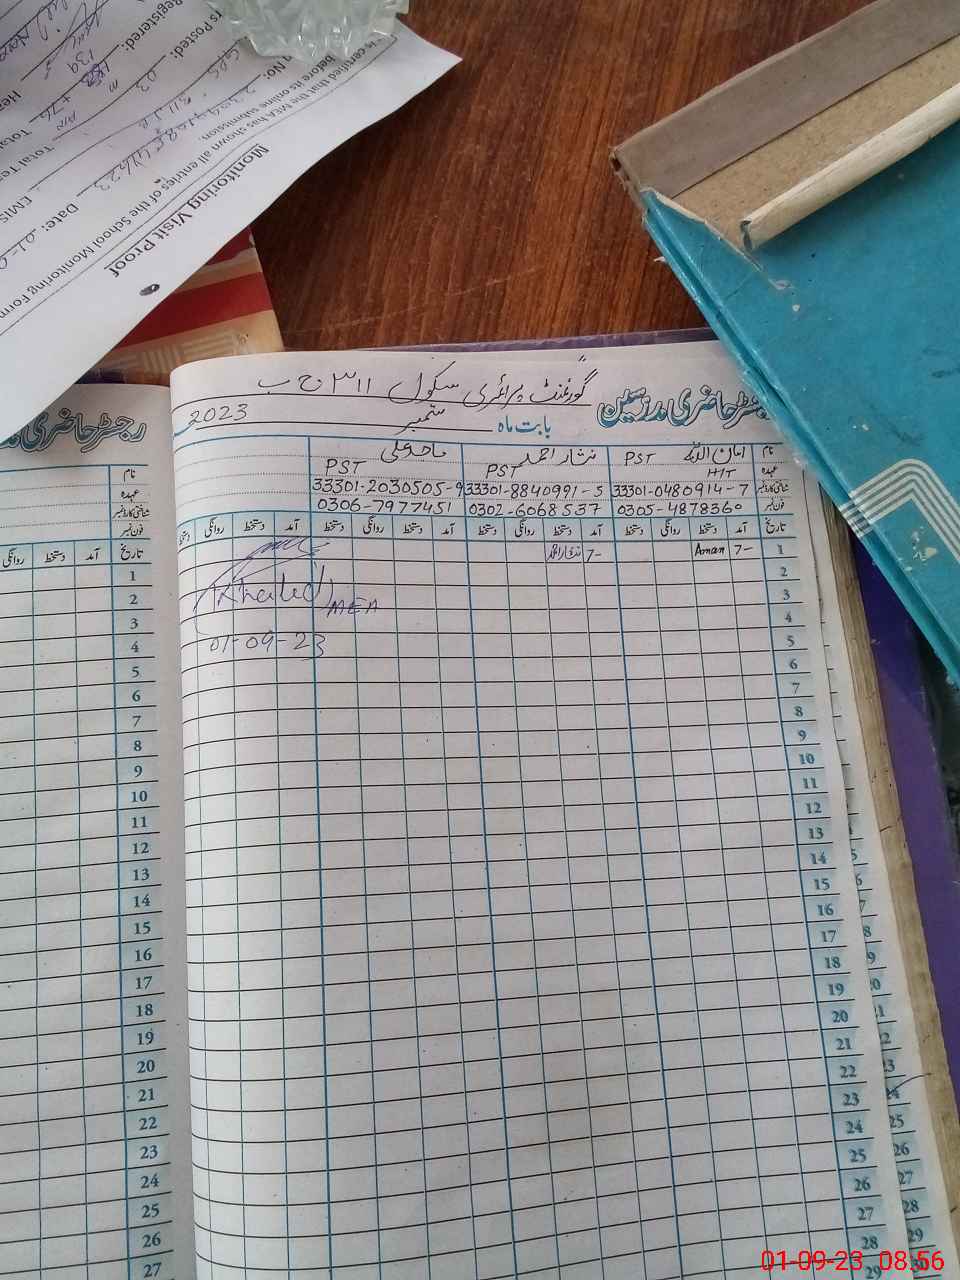 Monitoring Visit Proof
is certified that the MEA has shown all entries of the School Monitoring Form
before its online submission.
EMIS
Date: 01-0
No:
Posted: 03
Registered: 139
Total
رجسٹر حاضری مدرسین
گورنمنٹ پرائمری سکول ۳۱۱ ج ب
بابت ماہ ستمبر 2023
نام امان اللہ PST نثار احمد PST ماجد علی PST
عہدہ H/T
شناختی کارڈ نمبر 33301-0480914-7 33301-8840991-5 33301-2030505-9
فون نمبر 0305-4878360 0302-6068537 0306-7977451
تاریخ آمد دستخط روانگی دستخط آمد دستخط روانگی دستخط آمد دستخط روانگی دستخط آمد دستخط روانگی دستخط
1 7- Aman 7- نثار احمد
2
3
Khalid MEA
4
5
01-09-23
6
7
8
9
10
11
12
13
14
15
16
17
18
19
20
21
22
23
24
25
26
27
28
29
رجسٹر حاضری مد
نام
عہدہ
شناختی کارڈ نمبر
فون نمبر
تاریخ آمد دستخط روانگی
1
2
3
4
5
6
7
8
9
10
11
12
13
14
15
16
17
18
19
20
21
22
23
24
25
26
27
01-09-23 08:56